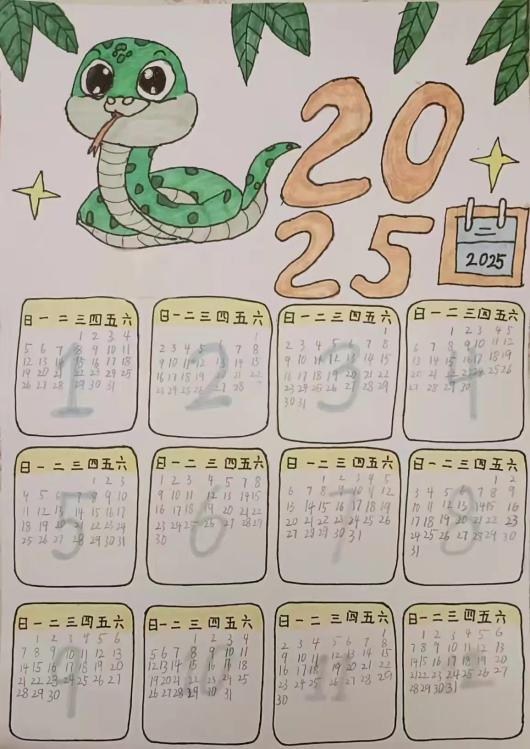 20
25
二
2025
日一二三四五六
1
1 2 3 4
5 6 7 8 9 10 11
12 13 14 15 16 17 18
19 20 21 22 23 24 25
26 27 28 29 30 31
日一二三四五六
2
1
9 10 11 12 13 14 15
16 17 18 19 20 21 22
日一二三四五六
3
1
2 3 4 5 6 7 8
9 10 11 12 13 14 15
16 17 18 19 20 21 22
23 24 25 26 27 28 29
30 31
日一二三四五六
4
1 2 3 4 5
6 7 8 9 10 11 12
13 14 15 16 17 18 19
27 28 29 30
日一二三四五六
5
1 2 3
4 5 6 7 8 9 10
11 12 13 14 15 16 17
18 19 20 21 22 23 24
25 26 27 28 29 30 31
日一二三四五六
6
9 10 11 12 13 14 15
16 17 18 19 20 21 22
23 24 25 26 27 28 29
30
日一二三四五六
7
1 2 3 4 5
6 7 8 9 10 11 12
13 14 15 16 17 18 19
20 21 22 23 24 25 26
27 28 29 30 31
日一二三四五六
8
1 2
3 4 5 6 7 8 9
10 11 12 13 14 15 16
17 18 19 20 21 22 23
24 25 26 27 28 29 30
31
日一二三四五六
9
1 2 3 4 5 6
7 8 9 10 11 12 13
14 15 16 17 18 19 20
21 22 23 24 25 26 27
28 29 30
日一二三四五六
10
1 2 3 4
5 6 7 8 9 10 11
12 13 14 15 16 17 18
19 20 21 22 23 24 25
26 27 28 29 30 31
日一二三四五六
11
1
2 3 4 5 6 7 8
9 10 11 12 13 14 15
16 17 18 19 20 21 22
23 24 25 26 27 28 29
30
日一二三四五六
12
1 2 3 4 5 6
7 8 9 10 11 12 13
14 15 16 17 18 19 20
21 22 23 24 25 26 27
28 29 30 31